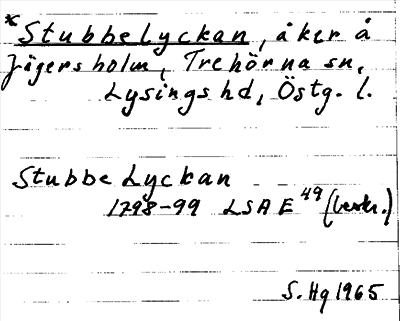 *Stubbelyckan, åker å
Jägersholm, Trehörna sn,
Lysings hd, Östg. l.
Stubbe Lyckan
1798-99 LSA E 49 (beskr.)
S. Hg 1965